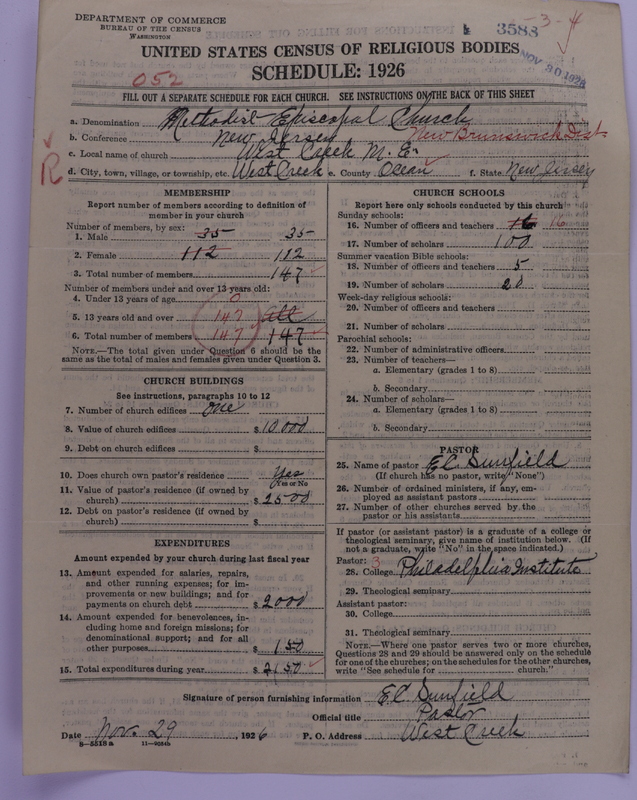 DEPARTMENT OF COMMERCE
BUREAU OF THE CENSUS
WASHINGTON
3588
-3-4
NOV 30 1926
UNITED STATES CENSUS OF RELIGIOUS BODIES
SCHEDULE: 1926
052
FILL OUT A SEPARATE SCHEDULE FOR EACH CHURCH. SEE INSTRUCTIONS ON THE BACK OF THIS SHEET
a. Denomination Methodist Episcopal Church
b. Conference New Jersey New Brunswick Dist
c. Local name of church West Creek M. E.
R
d. City, town, village, or township, etc. West Creek e. County Ocean f. State New Jersey
MEMBERSHIP
Report number of members according to definition of
member in your church
Number of members, by sex:
1. Male 35 35
2. Female 112 112
3. Total number of members 147
Number of members under and over 13 years old:
4. Under 13 years of age 0
5. 13 years old and over 147 all
6. Total number of members 147 147
NOTE.—The total given under Question 6 should be the
same as the total of males and females given under Question 3.
CHURCH BUILDINGS
See instructions, paragraphs 10 to 12
7. Number of church edifices one
8. Value of church edifices $10,000
9. Debt on church edifices $
10. Does church own pastor's residence Yes
Yes or No
11. Value of pastor's residence (if owned by
church) $2500
12. Debt on pastor's residence (if owned by
church) $
EXPENDITURES
Amount expended by your church during last fiscal year
13. Amount expended for salaries, repairs,
and other running expenses; for im-
provements or new buildings; and for
payments on church debt $2000
14. Amount expended for benevolences, in-
cluding home and foreign missions; for
denominational support; and for all
other purposes $150
15. Total expenditures during year $2150
CHURCH SCHOOLS
Report here only schools conducted by this church
Sunday schools:
16. Number of officers and teachers 16 16
17. Number of scholars 100
Summer vacation Bible schools:
18. Number of officers and teachers 5
19. Number of scholars 20
Week-day religious schools:
20. Number of officers and teachers
21. Number of scholars
Parochial schools:
22. Number of administrative officers
23. Number of teachers—
a. Elementary (grades 1 to 8)
b. Secondary
24. Number of scholars—
a. Elementary (grades 1 to 8)
b. Secondary
PASTOR
25. Name of pastor E.C. Sunfield
(If church has no pastor, write "None")
26. Number of ordained ministers, if any, em-
ployed as assistant pastors
27. Number of other churches served by the
pastor or his assistants
If pastor (or assistant pastor) is a graduate of a college or
theological seminary, give name of institution below. (If
not a graduate, write "No" in the space indicated.)
Pastor: 3
28. College Philadelphia Institute
29. Theological seminary
Assistant pastor:
30. College
31. Theological seminary
NOTE.—Where one pastor serves two or more churches,
Questions 28 and 29 should be answered only on the schedule
for one of the churches; on the schedules for the other churches,
write "See schedule for church."
Signature of person furnishing information E.C. Sunfield
Official title Pastor
Date Nov. 29, 1926 P. O. Address West Creek
8-5518a 11-9084b